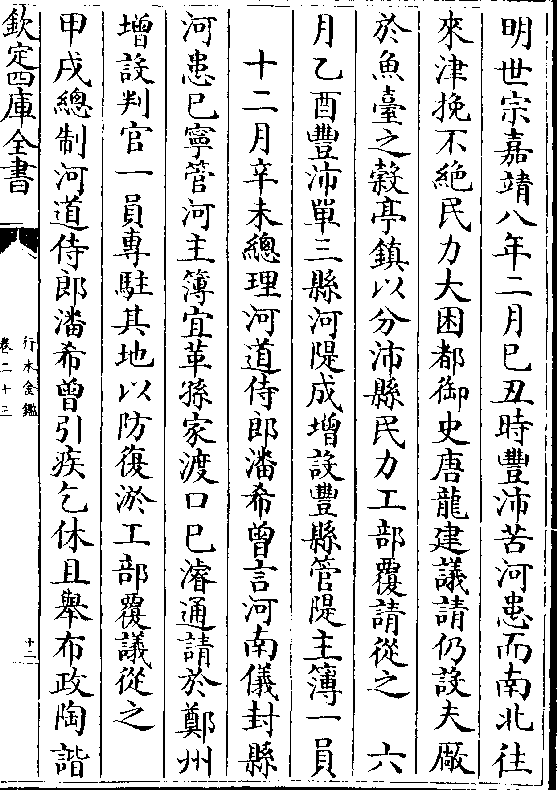 明世宗嘉靖八年二月己丑時豐沛苦河患而南北往
來津挽不絶民力大困都御史唐龍建議請仍設夫厰
於魚臺之糓亭鎮以分沛縣民力工部覆請從之　六
月乙酉豐沛單三縣河隄成增設豐縣管隄主簿一員
十二月辛未總理河道侍郎潘希曾言河南儀封縣
河患已寧管河主簿宜革孫家渡口已濬通請於鄭州
增設判官一員專駐其地以防復淤工部覆議從之
甲戌總制河道侍郎潘希曾引疾乞休且舉布政陶諧
欽定四庫全書
行水金鑑
卷二十三
十二